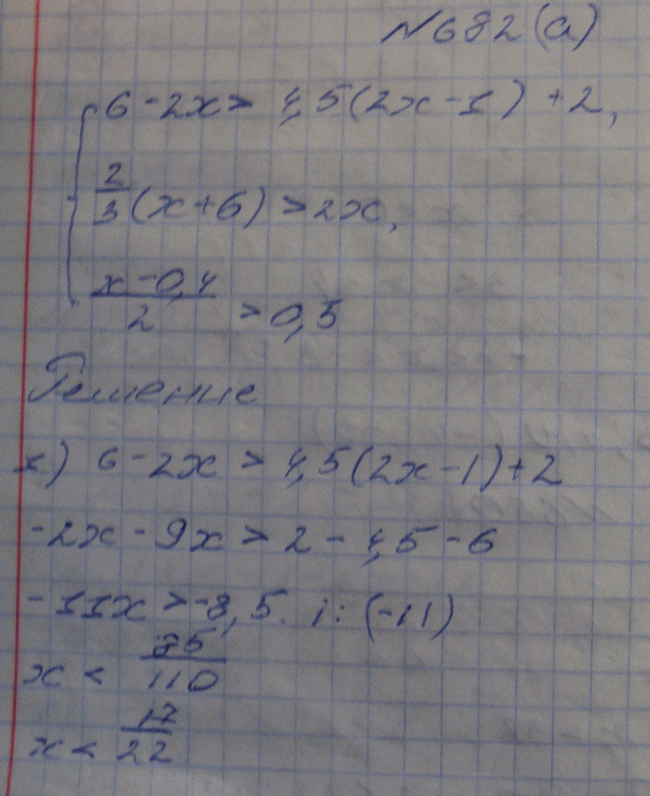 №682(а)
6-2x > 4,5(2x-1)+2,
2/3(x+6) > 2x,
x-0,4/2 > 0,5
Решение
x) 6-2x > 4,5(2x-1)+2
-2x-9x > 2-4,5-6
-11x > -8,5. |:(-11)
x < 85/110
x < 17/22